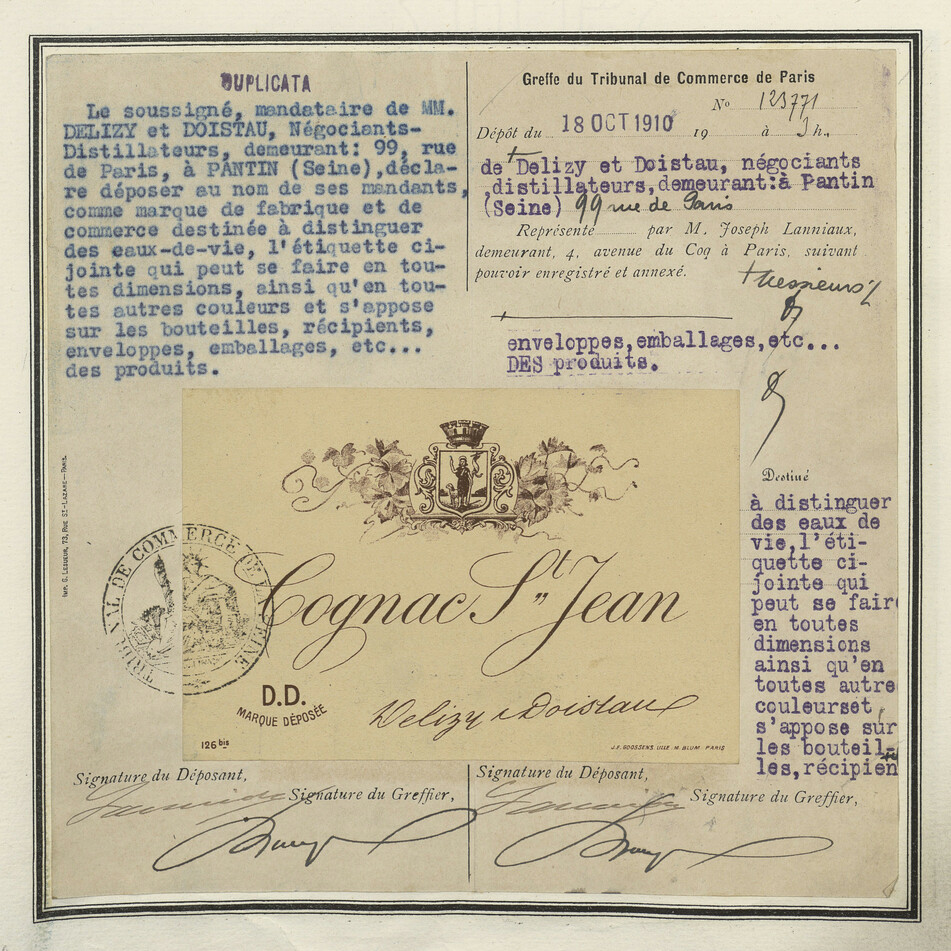 DUPLICATA
Le soussigné, mandataire de MM.
DELIZY et DOISTAU, Négociants-
Distillateurs, demeurant: 99, rue
de Paris, à PANTIN (Seine),décla-
re déposer au nom de ses mandants,
comme marque de fabrique et de
commerce destinée à distinguer
des eaux-de-vie, l'étiquette ci-
jointe qui peut se faire en tou-
tes dimensions, ainsi qu'en tou-
tes autres couleurs et s'appose
sur les bouteilles, récipients,
enveloppes, emballages, etc...
des produits.
Greffe du Tribunal de Commerce de Paris
No 123771
Dépôt du 18 OCT 1910 19 à 3 h.
de Delizy et Doistau, négociants
,distillateurs,demeurant:à Pantin
(Seine) 99 rue de Paris
Représenté par M. Joseph Lanniaux,
demeurant, 4, avenue du Coq à Paris, suivant
pouvoir enregistré et annexé.
+ Messieurs
enveloppes,emballages,etc...
DES produits.
Destiné
à distinguer
des eaux de
vie,l'éti-
quette ci-
jointe qui
peut se fair
en toutes
dimensions
ainsi qu'en
toutes autre
couleurset
s'appose sur
les bouteil-
les,récipien
Imp. G. Lesueur, 73, Rue St-Lazare—Paris.
TRIBUNAL DE COMMERCE DE LA SEINE
Cognac St Jean
D.D.
MARQUE DÉPOSÉE
Delizy & Doistau
126 bis
J.F. GOOSSENS. LILLE. M. BLUM. PARIS
Signature du Déposant,
Signature du Greffier,
Signature du Déposant,
Signature du Greffier,